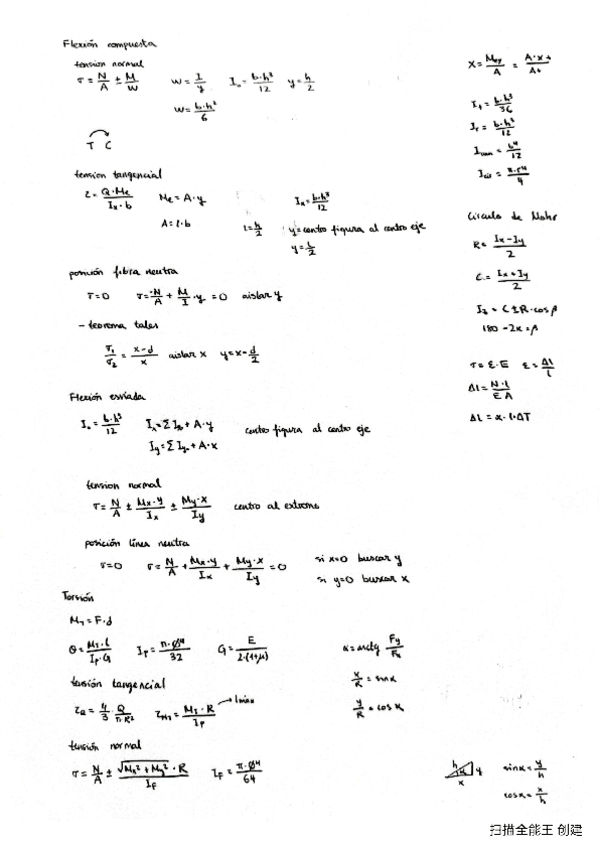 Flexión compuesta
tension normal
σ = N/A ± M/W   W = I/y   I₀ = b·h³/12   y = h/2
W = b·h²/6
T C
tension tangencial
τ = Q·Me/(Ix·b)   Me = A·y   Ix = b·h³/12
A = l·b   l = h/2   y = centro figura al centro eje
posición fibra neutra
σ = 0   σ = -N/A + M/I · y = 0   aislar y
- teorema tales
σ₁/σ₂ = x-d/x   aislar x   y = x - d/2
Flexión esviada
I₀ = b·h³/12   Ix = Σ I + A·y   centro figura al centro eje
Iy = Σ Iy₀ + A·x
tension normal
σ = N/A ± Mx·y/Ix ± My·x/Iy   centro al extremo
posición línea neutra
σ = 0   σ = N/A + Mx·y/Ix + My·x/Iy = 0   si x=0 buscar y
si y=0 buscar x
Torsión
M_T = F·d
θ = M_T·l/(Ip·G)   Ip = π·Ø⁴/32   G = E/(2·(1+μ))
tensión tangencial
τ_Q = 4/3 · Q/(π·R²)   τ_MT = M_T·R/Ip
tensión normal
σ = N/A ± √(Mx² + My²)·R/I_F   I_F = π·Ø⁴/64
A·x+
I_t = b·h³/36
I_r = b·h³/12
b⁴/12
I_cir = π·r⁴/4
Circulo de Mohr
R = Ix - Iy/2
C = Ix + Iy/2
C ± R·cos β
180 - 2α = β
σ = ε·E   ε = Δl/l
Δl = N·l/(E A)
Δl = α·l·ΔT
α = arctg Fy/Fx
x/R = sin α
y/R = cos α
h y x
sin α = y/h
cos α = x/h
扫描全能王 创建